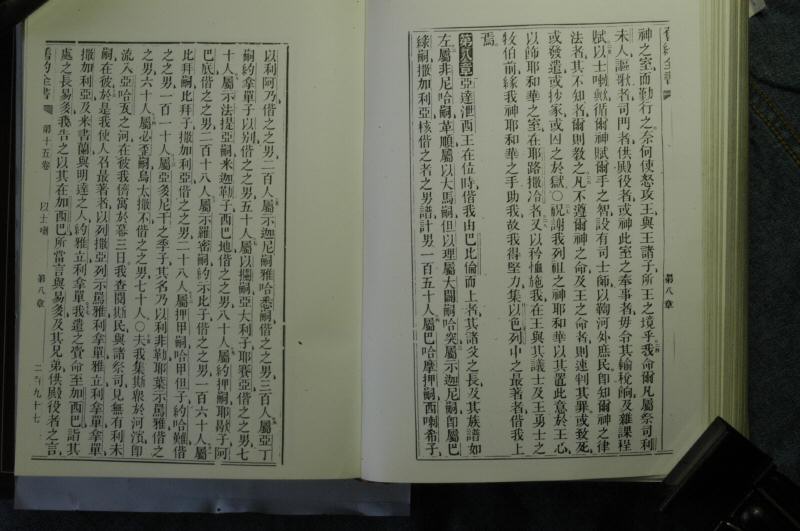 舊約全書
神之室而勤行之奈何使怒攻王與王諸子所王之境乎我命爾凡屬祭司利
未人謳歌者司門者供殿役者或神此室之奉事者毋令其輸稅餉及雜課程
賦以士喇歟循爾神賦爾手之智設有司士師以鞫河外庶民即知爾神之律
法者其不知者爾則教之凡不遵爾神之命及王之命者則速判其罪或致死
或發遣或抄家或囚之於獄○祝謝我列祖之神耶和華以其置此意於王心
以飾耶和華之室在耶路撒冷者又以矜恤施我在王與其議士及王勇士之
前緣我神耶和華之手助我故我得堅力集以色列中之最著者偕我上
焉
第八章亞達泄西王在位時偕我由巴比倫而上者其諸父之長及其族譜如
左屬非尼哈嗣革順屬以大馬嗣但以理屬大闢嗣哈突屬示迦尼嗣即屬巴
綠嗣撒加利亞核偕之者之男譜計男一百五十人屬巴哈摩押嗣西喇希子
第八章
以利阿乃偕之之男二百人屬示迦尼嗣雅哈悉嗣偕之之男三百人屬亞丁
嗣約拿單子以別偕之之男五十人屬以攔嗣亞大利子耶賽亞偕之之男七
十人屬示法提亞嗣米迦勒子西巴地偕之之男八十人屬約押嗣耶歇子阿
巴底偕之之男二百十八人屬示羅密嗣約示比子偕之之男一百六十人屬
比拜嗣比拜子撒加利亞偕之之男二十八人屬押甲嗣哈甲但子約哈難偕
之之男一百一十人屬亞多尼干之季子其名乃以利非勒耶葉示馬雅偕之
之男六十人屬必歪嗣烏太撒不偕之之男七十人○夫我集斯衆於河濱即
流入亞哈瓦之河在彼我儕寓於幕三日我查閱斯民與諸祭司見無有利未
嗣在彼於是我使人召最著者以列撒亞列示馬雅利拿單雅立利拿單拿單
撒加利亞及米書蘭與明達之人約雅立利拿單我遣之賷命至加西巴詣其
處之長易多我告之以其在加西巴所當言與易多及其兄弟供殿役者之言
舊約全書
第十五卷
以士喇
第八章
二百九十七